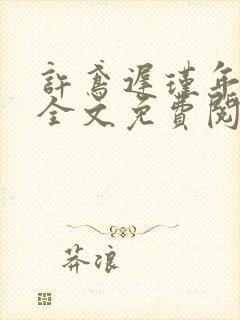 許鳶遲瑾年
全文免費閱
莽浪